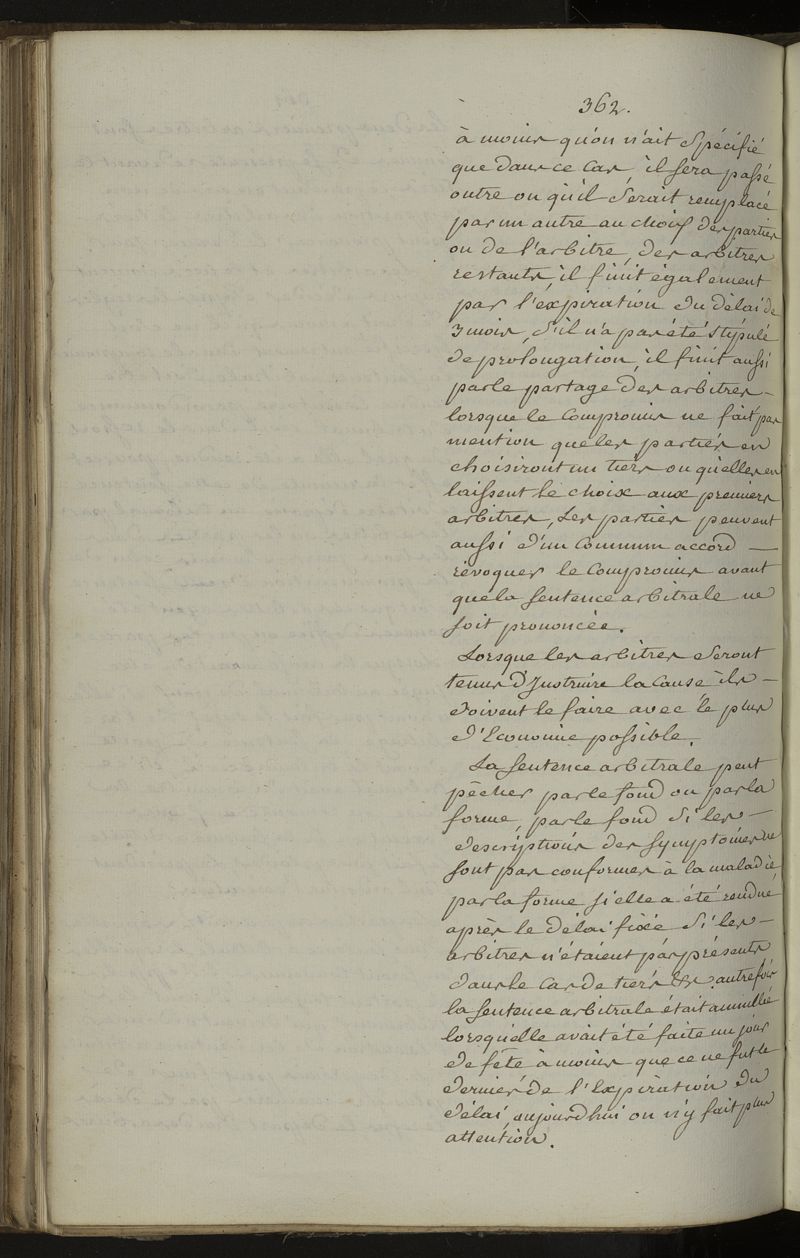 362.
à moins qu'on n'ait spécifié
que dans ce cas, il sera passé
outre ou qu'il serait remplacé
par un autre au choix des parties
ou de l'arbitre, des arbitres
restants, il finit également
par l'expiration du délai de
3 mois, s'il n'a pas été stipulé
de prolongation, il finit aussi
par le partage des arbitres –
lorsque le compromis ne fait pas
mention que les parties en
choisiront un tiers ou qu'elles en
laissent le choix aux premiers
arbitres, Les parties peuvent
aussi d'un commun accord —
révoquer le compromis avant
que la sentence arbitrale ne
soit prononcée.
Lorsque les arbitres seront
tenus d'Instruire la cause ils –
doivent le faire avec le plus
d'Economie possible.
La sentence arbitrale peut
pêcher par le fond ou par la
forme, par le fond si les –
descriptions des symptômes ne
sont pas conformes à la maladie
par la forme si elle a été rendue
après le délai fixée si les –
arbitres n'étaient pas présents
dans le cas de tiers &a. autrefois
la sentence arbitrale était annullée
lorsqu'elle avait été faite un jour
de fête à moins que ce ne fut le
dernier de l'Expiration du
délai, aujourdhui on n'y fait plus
attention.